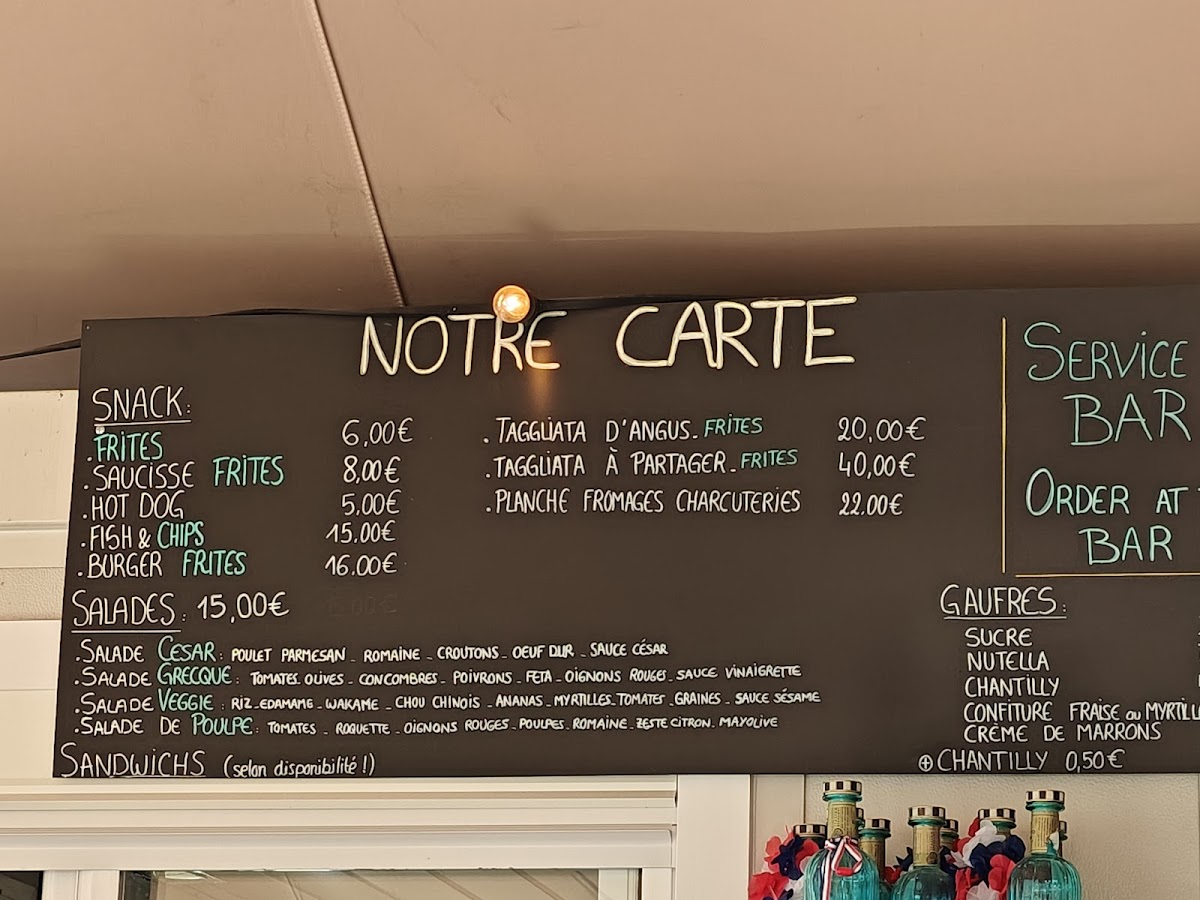 NOTRE CARTE
SNACK:
.FRITES 6,00€
.SAUCISSE FRITES 8,00€
.HOT DOG 5,00€
.FISH & CHIPS 15.00€
.BURGER FRITES 16.00€
.TAGGLIATA D'ANGUS_FRITES 20,00€
.TAGGLIATA À PARTAGER_FRITES 40,00€
.PLANCHE FROMAGES CHARCUTERIES 22.00€
SALADES: 15,00€
.SALADE CESAR: POULET PARMESAN_ROMAINE_CROUTONS_OEUF DUR_SAUCE CÉSAR
.SALADE GRECQUE: TOMATES_OLIVES_CONCOMBRES_POIVRONS_FETA_OIGNONS ROUGES_SAUCE VINAIGRETTE
.SALADE VEGGIE: RIZ_EDAMAME_WAKAME_CHOU CHINOIS_ANANAS_MYRTILLES_TOMATES_GRAINES_SAUCE SÉSAME
.SALADE DE POULPE: TOMATES_ROQUETTE_OIGNONS ROUGES_POULPES_ROMAINE_ZESTE CITRON_MAYOLIVE
SANDWICHS (selon disponibilité!)
SERVICE
BAR
ORDER AT
BAR
GAUFRES:
SUCRE
NUTELLA
CHANTILLY
CONFITURE FRAISE ou MYRTILLE
CRÈME DE MARRONS
⊕ CHANTILLY 0,50€